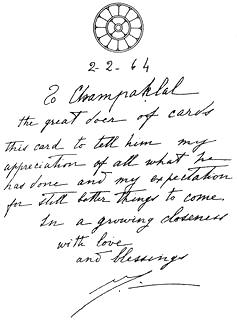 2-2-64
To Champaklal
the great doer of cards
This card to tell him my
appreciation of all what he
has done and my expectation
for still better things to come
In a growing closeness
with love
and blessings